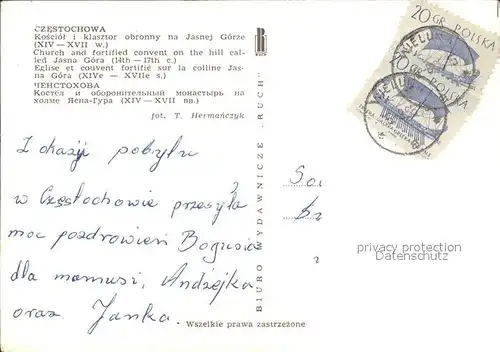 CZĘSTOCHOWA
Kościół i klasztor obronny na Jasnej Górze
(XIV — XVII w.)
Church and fortified convent on the hill cal-
led Jasna Góra (14th — 17th c.)
Eglise et couvent fortifié sur la colline Jas-
na Góra (XIVe — XVIIe s.)
ЧЕНСТОХОВА
Костёл и оборонительный монастырь на
холме Ясна-Гура (XIV — XVII вв.)
fot. T. Hermańczyk
Z okazji pobytu
w Częstochowie przesyła
moc pozdrowień Bogusia
dla mamusi, Andżejka
oraz Janka.
Wszelkie prawa zastrzeżone
BIURO WYDAWNICZE „RUCH”
20 GR. POLSKA
POLSKA
WIELUŃ
WIELUŃ
privacy protection
Datenschutz